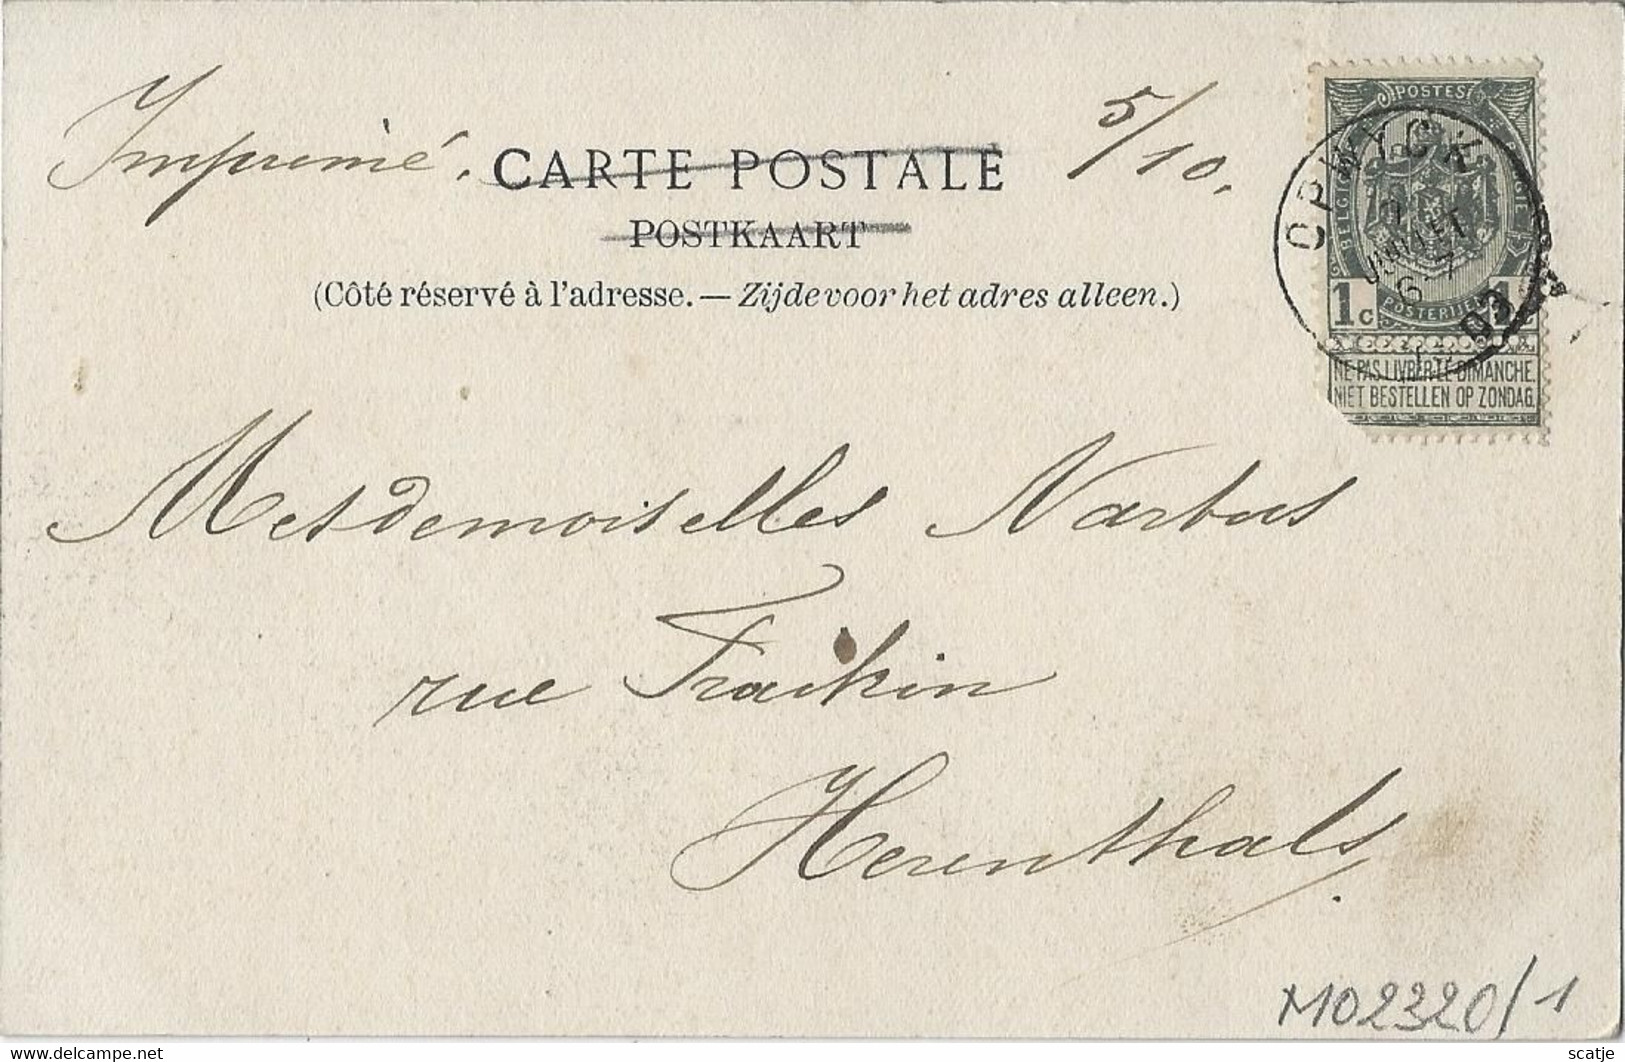 Imprimé. 5/10.
CARTE POSTALE
POSTKAART
(Côté réservé à l'adresse. — Zijde voor het adres alleen.)
POSTES
BELGIQUE
POSTERIJEN
1c
NE PAS LIVRER LE DIMANCHE.
NIET BESTELLEN OP ZONDAG.
OPWYCK
JUILLET
6-7
03
Mesdemoiselles Narbus
rue Fraikin
Herenthals
M02320/1
delcampe.net
scatje